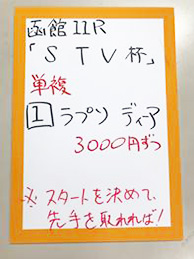 函館11R
「STV杯」
単複
1 ラプソディーア
3000円ずつ
※スタートを決めて、
先手を取れれば!